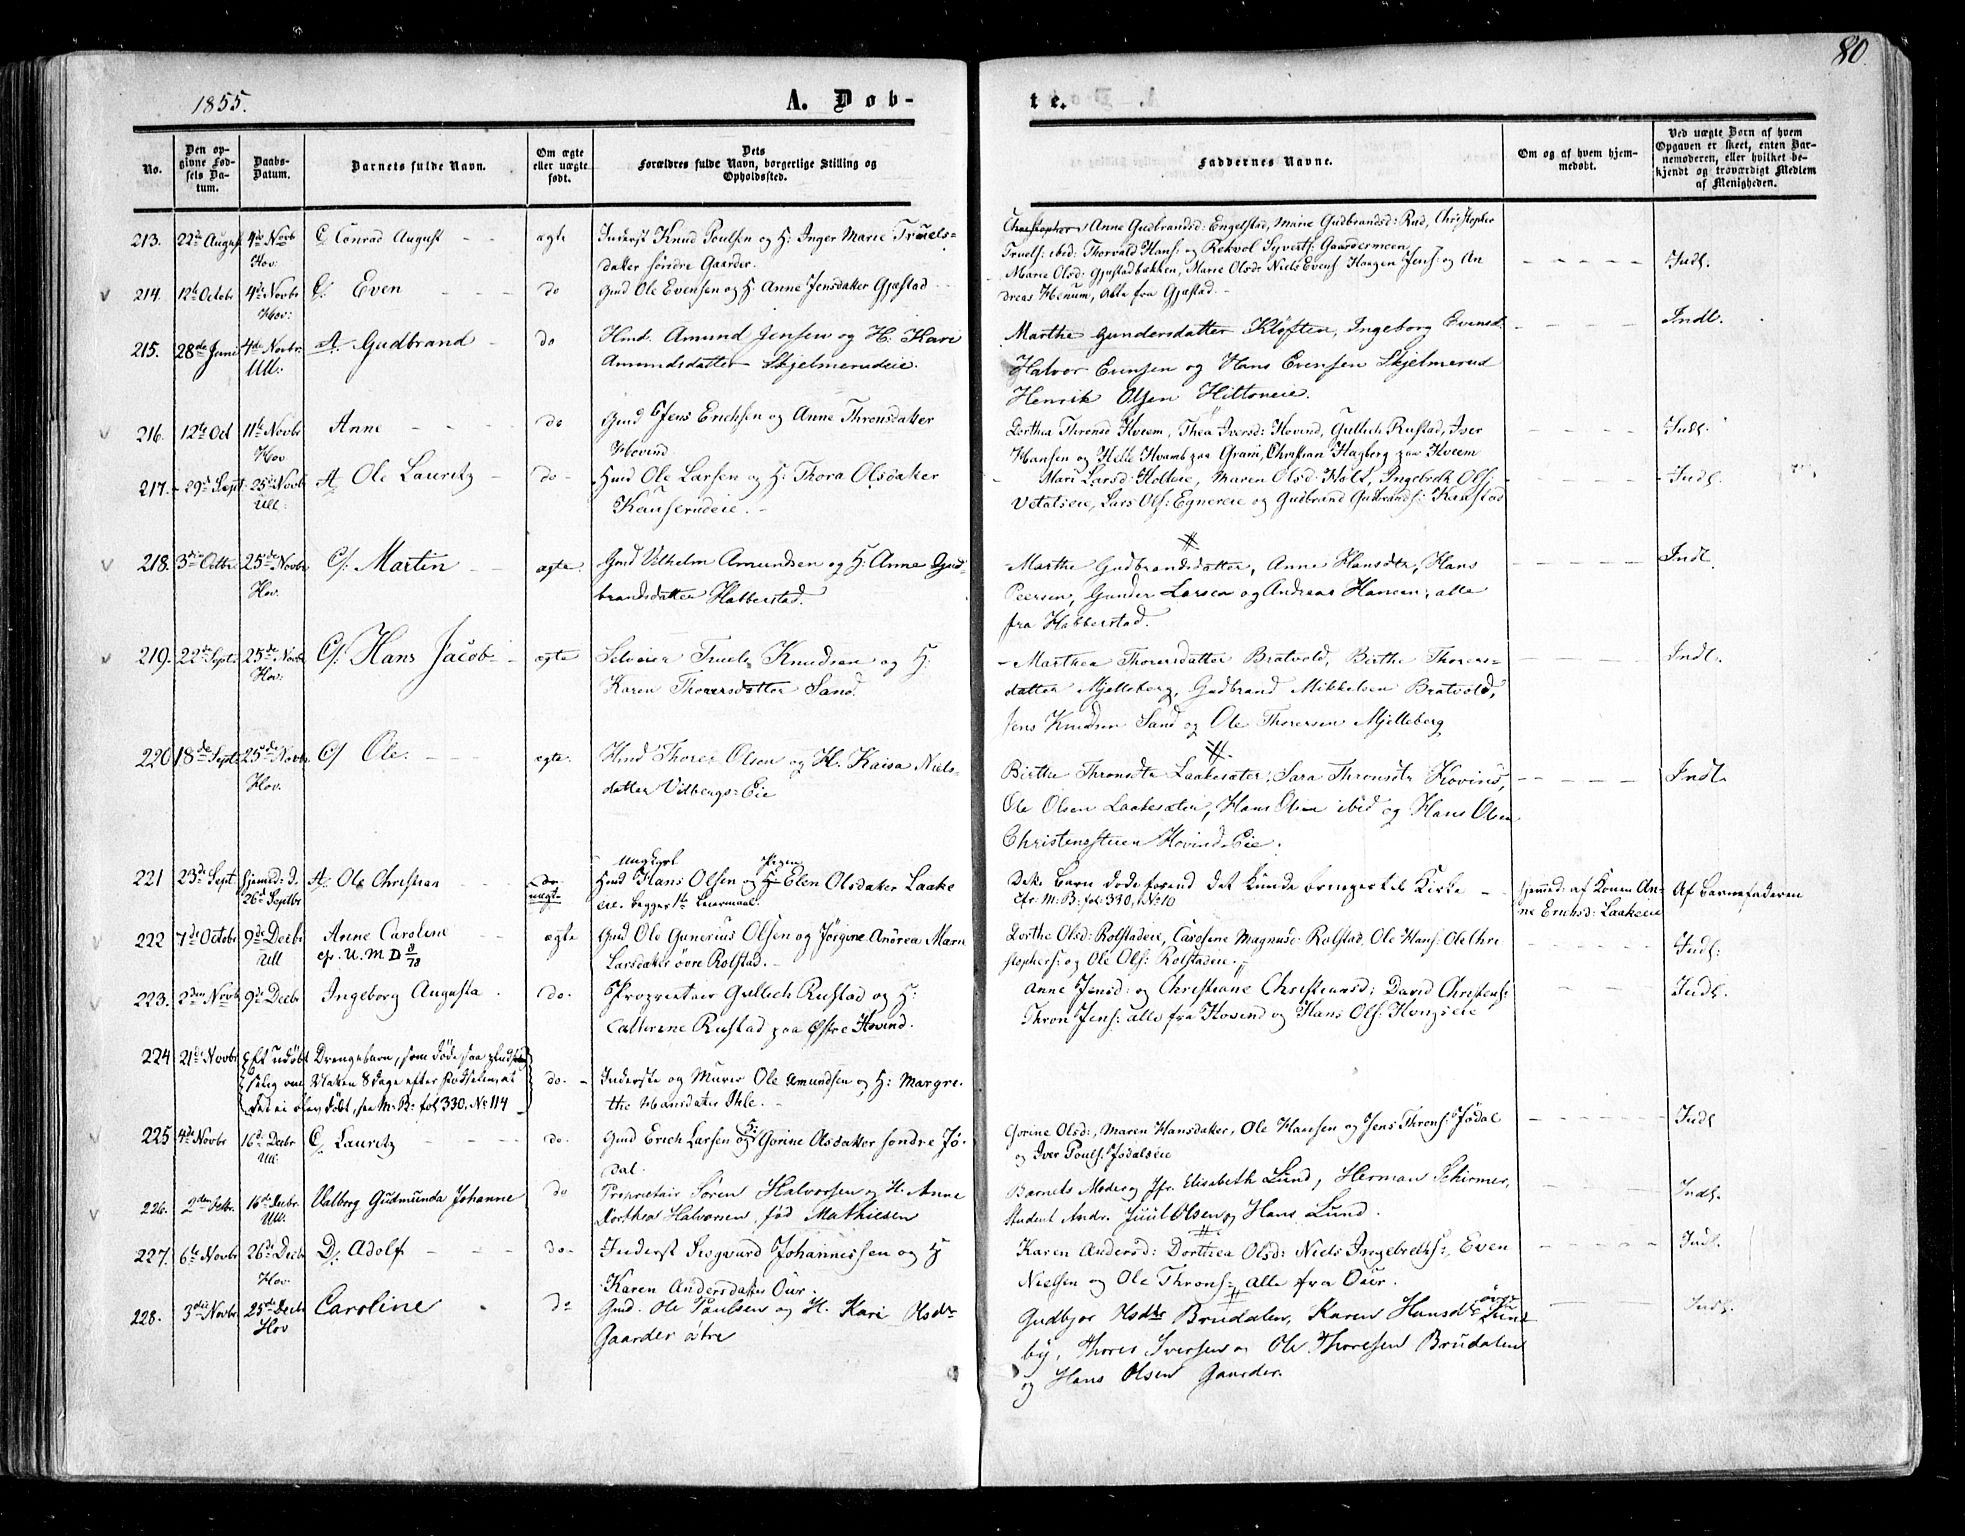 80.
1855.
A. Døb-
te.
No.
Den opgivne Fødsels Datum.
Daabs-Datum.
Barnets fulde Navn.
Om ægte eller uægte født.
Dets Forældres fulde Navn, borgerlige Stilling og Opholdssted.
Faddernes Navne.
Om og af hvem hjemmedøbt.
Ved uægte Børn af hvem Opgaven er skeet, enten Barnemoderen, eller hvilket bekjendt og troværdigt Medlem af Menigheden.
213. 22de August 4de Novb Hov. C/ Conrad August ægte Inderst Knud Poulsen og H: Inger Marie Truels-
datter søndre Gaarder.
Anne Gudbrandsd: Engelstad, Marie Gudbrandsd: Rud, Christopher
Truels: ibid: Thorvald Hans: og Rekvol Syverts: Gaardermoen
Indl.
214. 12te Octobr 4de Novbr Hov: C/ Even do Gmd Ole Evensen og H: Anne Jensdatter Gjæstad
Marie Olsd: Gjæstadbakken, Marie Olsdr Niels Evens Haagen Jens: og An
dreas Henum, alle fra Gjæstad.
Indl.
215. 28de Juni 4de Novbr. Ull: A. Gudbrand do Hmd. Amund Jensen og H: Kari
Amundsdatter Skjelmerudeie.
Marthe Gundersdatter Kløften, Ingeborg Evensd:
Halvor Evensen og Hans Evensen Skjelmerud
Henrik Olsen Hiltoneie.
216. 12te Oct 11te Novbr Hov Anne do Gmd Jens Erichsen og Anne Thronsdatter
Hovind
Dorthea Thronsd Kveem, Thea Iversd: Hovind, Gullich Rustad, Iver
Hansen og Helle Hvamb paa Grani, Christian Hagberg paa Kveem
Indl.
217. 29d Sept 25de Novbr Ull: A Ole Lauritz do Hmd Ole Larsen og H: Thora Olsdatter
Kauserudeie.
Mari Larsd: Holteie, Maren Olsd Holt, Ingebreth Ols:
Lars Ols: Egnereie og Gudbrand Gudbrands: Knustad
Indl.
218. 3die Octbr 25de Novbr Hov. C/ Martin ægte. Gmd Vilhelm Amundsen og H: Anne Gud-
brandsdatter Habberstad.
Marthe Gudbrandsdatter, Anne Hansdtr, Hans
Peersen, Gunder Larsen og Andreas Hansen, alle
fra Habberstad.
Indl.
219. 22de Sept: 25de Novbr Hov: C/ Hans Jacob ægte Selveier Truels Knudsen og H:
Karen Thorersdatter Sand.
Marthea Thorersdatter Bratvold, Birthe Thorers-
datter Mjelleberg, Gudbrand Mikkelsen Bratvold,
Jens Knudsen Sand og Ole Thorersen Mjelleberg
Indl.
220 18de Sept: 25de Novbr. Hov. C/ Ole. ægte. Hmd Thorer Olsen og H. Kaisa Niels-
datter Vilbergs-Eie
Birthe Thronsdtr Laakesæter, Sara Thronsdtr Hovind,
Ole Olsen Laakesæter, Hans Olsen ibid og Hans Olsen
Christensstuen Hovinds Eie.
Indl.
221 23de Sept Hjemmed: d. 26d Septbr A. Ole Christian do uægte Ungkarl Hmd Hans Olsen og Pigen H: Elen Olsdatter Laake
eie. begges 1ste Leiermaal.
Dette Barn døde forend det kunde bringes til Kirke
cfr: M: B: fol: 330, No 10
hjemmed: af Konen An-
ne Eriksd: Laakeeie
Af Barnefaderen
222 7de Octobr 9de Decbr Ull Anne Caroline
cfr. U. M D 8/78
ægte Gmd Ole Gunerius Olsen og Jørgine Andrea Marn
Larsdatter øvre Rolstad.
Dorthe Olsd: Rolstadeie, Caroline Magnusd: Rolstad, Ole Hans: Ole Chri
stophers: og Ole Ols: Rolstadeie.
Indl:
223. 2den Novbr 9de Decbr Ingeborg Augusta. do. Proprietair Gullich Rustad og H:
Catherine Rustad paa Østre Hovind.
Anne Jensd: og Christiane Christiansd: David Christens:
Thron Jens: alle fra Hovind og Hans Ols: Hovgseie
Indl.
224 21de Novbr Et udøbt Drengebarn, som døde saa pluds
selig om Natten 8 dage efter Fødselen, at
det ei blev døbt, see M: B: fol 330. No 114
do. Inderste og Murer Ole Amundsen og H: Margre-
the Hansdatter Ihle.
225 4de Novbr 16d Decbr Ull. C/ Lauritz do. Gmd Erich Larsen og H: Gorine Olsdatter søndre Jø-
dal.
Gorine Olsd:, Maren Hansdatter, Ole Hansen og Jens Throns: Jødal
og Iver Pouls: Jødalseie
Indl
226. 2den 16de Decbr. Ull. Valborg Gudmunda Johanne do Proprietair Søren Halvorsen og H. Anne
Dorthea Halvorsen, fød Mathiesen
Barnets Moder og Jfr. Elisabeth Lund, Herman Schirmer,
Student Andr. Juul Olsen og Hans Lund.
Indl.
227. 6te Novbr 26de Decb Hov. D. Adolf do. Inderst Sivgaurd Johannessen og H
Karen Andersdatter Our.
Karen Andersd: Dorthea Olsd: Niels Ingebreths:, Even
Nielsen og Ole Throns: alle fra Ouer.
Indl.
228. 3die Novbr 25de Decbr Hov Caroline do Gmd. Ole Paulsen og H. Kari Olsdr
Gaarder øtre
Gudbjor Olsdtr Brudalen, Karen Hansdtr øvre Lund
by, Thorer Iversen og Ole Thoresen Brudalen
og Hans Olsen Gaarder.
Indl.